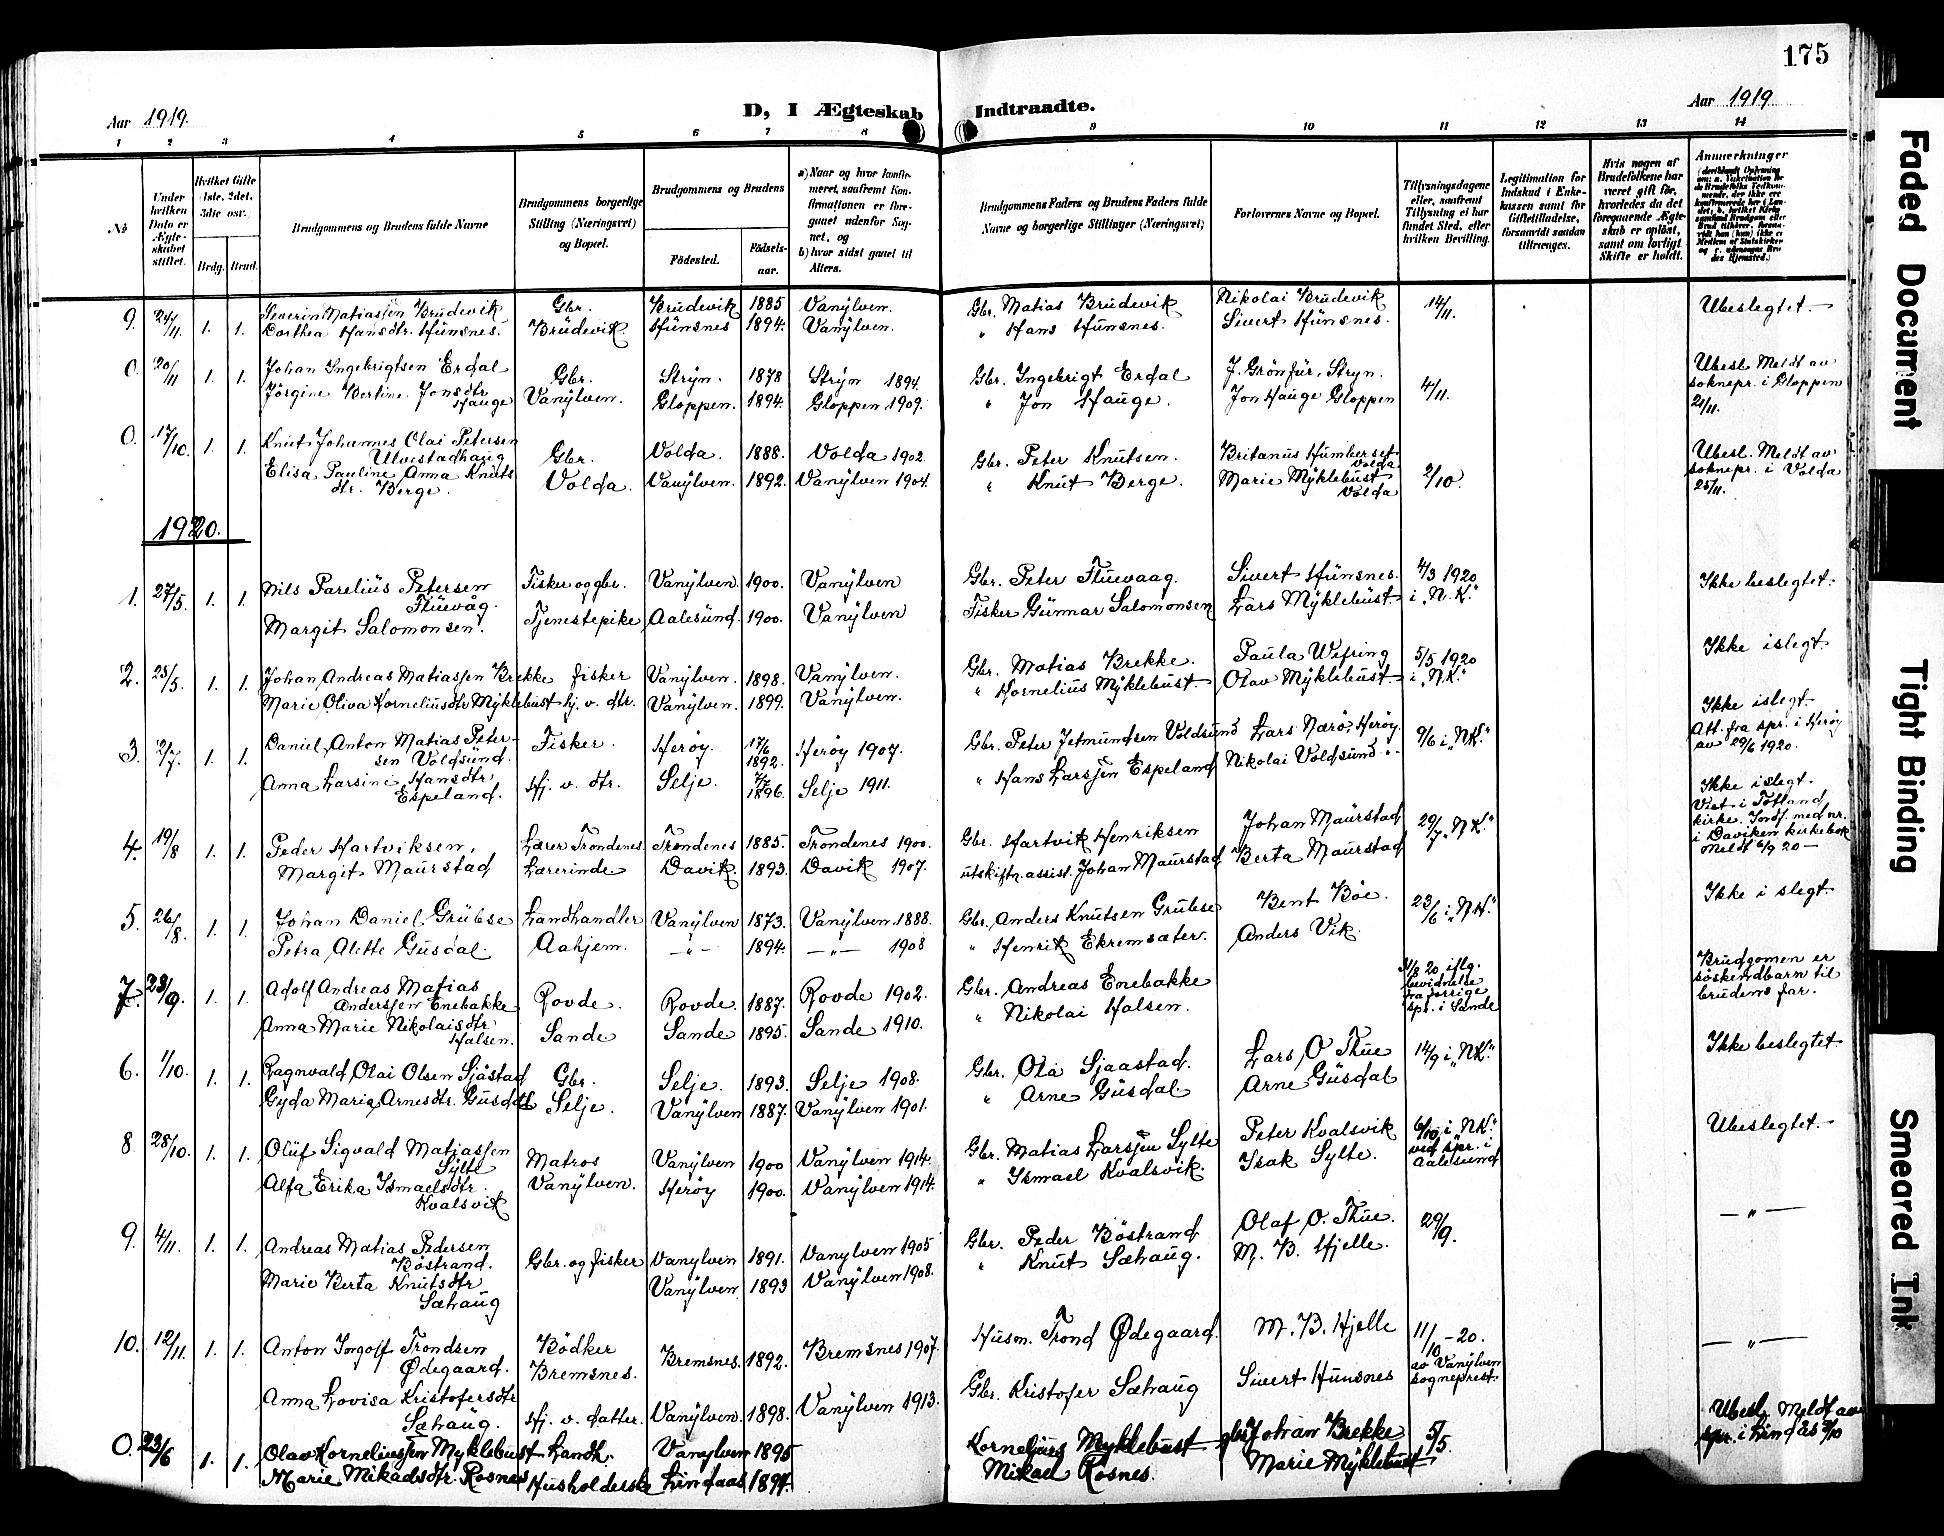 175
Aar 1919.
D, I Ægteskab Indtraadte.
Aar 1919
1 2 3 4 5 6 7 8 9 10 11 12 13 14
No
Under hvilken Dato er Ægteskabet stiftet.
Hvilket Gifte (1ste, 2det, 3die osv.)
Brdg. Brud.
Brudgommens og Brudens fulde Navne
Brudgommens borgerlige Stilling (Næringsvei) og Bopæl.
Brudgommens og Brudens
Fødested.
Fødselsaar.
a) Naar og hvor konfirmeret, saafremt Konfirmationen er foregaaet udenfor Sognet, og
b) hvor sidst gaaet til Alters.
Brudgommens Faders og Brudens Faders fulde Navne og borgerlige Stillinger (Næringsvei)
Forlovernes Navne og Bopæl.
Tillysningsdagene eller, saafremt Tillysning ei har fundet Sted, efter hvilken Bevilling.
Legitimation for Indskud i Enkekassen samt for Giftetilladelse, forsaavidt saadan tiltrænges.
Hvis nogen af Brudefolkene har været gift før, hvorledes da det foregaaende Ægteskab er opløst, samt om lovligt Skifte er holdt.
Anmerkninger
9. 24/11. 1. 1. Severin Matiassen Brudevik Gbr. Brudevik 1885 Vanylven. Gbr. Matias Brudevik Nikolai Brudevik 14/11. Ubeslegtet.
Dorthea Hansdtr. Hunsnes. Brudevik Hunsnes 1894. Vanylven. " Hans Hunsnes. Sivert Hunsnes.
0. 20/11 1. 1. Johan Ingebrigtsen Erdal Gbr. Stryn. 1878 Stryn 1894. Gbr. Ingebrigt Erdal J. Grönfur, Stryn. 4/11. Ubesl. Meldt av
Jörgine Bertine Jonsdtr Hauge Vanylven. Gloppen. 1894. Gloppen 1909. " Jon Hauge. Jon Hauge Gloppen soknepr. i Gloppen
21/11.
0. 17/10. 1. 1. Knut Johannes Olai Petersen Ulvestadhaug Gbr. Volda. 1888. Volda 1902. Gbr. Peter Knutsen. Britanus Humberset Volda 2/10. Ubesl. Meldt av
Elisa Pauline Anna Knutsdtr. Berge. Volda. Vanylven. 1892. Vanylven 1904. " Knut Berge. Marie Myklebust Volda soknepr. i Volda
25/11.
1920.
1. 27/5. 1. 1. Nils Parelius Petersen Fluevåg. Fisker og gbr. Vanylven. 1900. Vanylven Gbr. Peter Fluevaag. Sivert Hunsnes. 4/3 1920 Ikke beslegtet.
Margit Salomonsen. Tjenestepike Aalesund. 1900. Vanylven Fisker Gunnar Salomonsen Lars Myklebust i "N.K."
2. 25/5. 1. 1. Johan Andreas Matiassen Brekke fisker Vanylven. 1898. Vanylven. Gbr. Matias Brekke. Paula Wefring 5/5 1920 Ikke i slegt
Marie Oliva Korneliusdtr Myklebust hj. v. dtr. Vanylven. 1899. Vanylven. " Kornelius Myklebust. Olav Myklebust. i "N.K."
3. 2/7. 1. 1. Daniel Anton Matias Petersen Voldsund. Fisker. Herøy. 17/6 1892. Herøy 1907. Gbr. Peter Jetmundsen Voldsund Lars Nærø, Herøy. 9/6 i "N.K." Ikke i slegt.
Att. fra spr. i Herøy av 29/6 1920.
Anna Larsine Hansdtr Espeland. Hj. v. dtr. Selje. 7/7 1896. Selje 1911. " Hans Larssen Espeland Nikolai Voldsund
4. 19/8 1. 1. Peder Hartviksen, Lærer Trondenes Trondenes 1885. Trondenes 1900. Gbr. Hartvik Henriksen Johan Maurstad 29/7 "N.K." Ikke i slegt.
Viet i Totland kirke. Indf. med nr. i Daviken kirkebok Meldt 6/9 20 —
Margit Maurstad Lærerinde Davik. 1893. Davik 1907. utskiftn. assist. Johan Maurstad Berta Maurstad
5. 26/8. 1. 1. Johan Daniel Grubse Landhandler Vanylven 1873. Vanylven 1888. Gbr. Anders Knutsen Grubse Bent Böe. 23/6 i "N.K." Ikke i slegt.
Petra Alette Gusdal. Aahjem. —"— 1894. —"— 1908 " Henrik Ekremsæter. Anders Vik.
7. 23/9. 1. 1. Adolf Andreas Matias Anderssen Enebakke Rovde. Rovde. 1887. Rovde 1902. Gbr. Andreas Enebakke 20 iflg. bevidnelse fra forrige spr. i Sande Brudgomen er söskendbarn til brudens far.
Anna Marie Nikolaisdtr Halsen. Sande Sande 1895. Sande 1910. " Nikolai Halsen.
6. 1/10. 1. 1. Ragnvald Olai Olsen Sjåstad Gbr. Selje. 1893. Selje 1908. Gbr. Ola Sjaastad. Lars O Thue 14/9 i "N.K." Ikke beslegtet.
Gyda Maria Arnesdtr. Gusdal Selje. Vanylven 1887. Vanylven 1901. " Arne Gusdal Arne Gusdal
8 28/10. 1. 1. Oluf Sigvald Matiassen Sylte Matros Vanylven 1900 Vanylven 1914. Gbr. Matias Larssen Sylte Peter Kvalsvik 6/10 i "N.K." ved spr. i Aalesund Ubeslegtet.
Alfa Erika Ismaelsdtr. Kvalsvik Vanylven. Herøy 1900. Vanylven 1914. " Ismael Kvalsvik. Isak Sylte.
9. 4/11. 1. 1. Andreas Matias Pedersen Böstrand. Gbr. og fisker Vanylven 1891. Vanylven 1905 Gbr. Peder Böstrand Olaf O. Thue. 29/9. —"—
Marie Berta Knutsdtr Sæhaug Vanylven 1893 Vanylven 1908. " Knut Sæhaug. M. B. Hjelle.
10. 12/11. 1. 1. Anton Ingolf Trondsen Ødegaard. Bödker Bremsnes. Bremsnes. 1892. Bremsnes 1907. Husm. Trond Ødegaard. M. B. Hjelle 11/10 - 20. av Vanylven sogneprest. —"—
Anna Lovisa Kristofersdtr Sæhaug. Hj. v. datter. Vanylven. 1898. Vanylven 1913. Gbr. Kristofer Sæhaug Sivert Hunsnes
0. 23/6 1. 1. Olav Korneliussen Myklebust Landh. Vanylven 1895 Kornelius Myklebust gbr Johan Brekke 5/5. Ubesl. Meldt av
Marie Mikalsdtr. Rosnes Husholderske Lindaas 1894. Mikael Rosnes. Marie Myklebust spr. i Lindås
Faded Document
Tight Binding
Smeared Ink